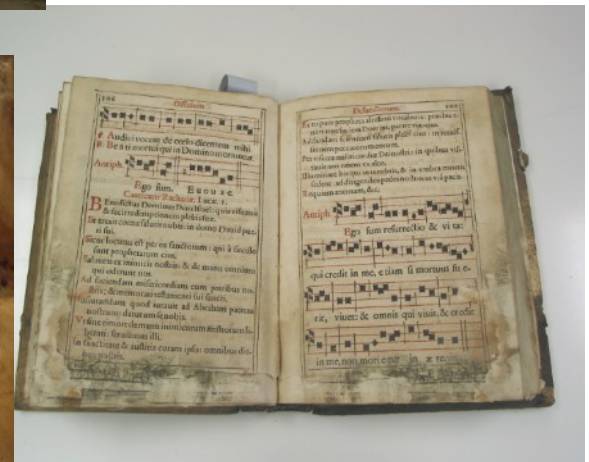 Officium
Audivi vocem de cœlo dicentem mihi
Beati mortui qui in Domino moriuntur.
Antiph.
Ego sum. E u o u a e.
Canticum Zachariæ. Lucæ. 1.
Benedictus Dominus Deus Israel: quia visitavit
& fecit redemptionem plebis suæ.
Et erexit cornu salutis nobis: in domo David pue-
ri sui.
Sicut locutus est per os sanctorum: qui à sæculo
sunt prophetarum eius.
Salutem ex inimicis nostris: & de manu omnium
qui oderunt nos.
Ad faciendam misericordiam cum patribus no-
stris: & memorari testamenti sui sancti.
Iusiurandum quod iuravit ad Abraham patrem
nostrum: daturum se nobis.
Ut sine timore de manu inimicorum nostrorum li-
berati: serviamus illi.
In sanctitate & iustitia coram ipso: omnibus die-
bus nostris.
Defunctorum.
Et tu puer propheta altissimi vocaberis: præibis e-
nim ante faciem Domini, parare vias eius.
Ad dandam scientiam salutis plebi eius: in remis-
sionem peccatorum eorum.
Per viscera misericordiæ Dei nostri: in quibus visi-
tavit nos oriens ex alto.
Illuminare his qui in tenebris, & in umbra mortis
sedent: ad dirigendos pedes nostros in viam pacis.
Requiem æternam, &c.
Antiph.
Ego sum resurrectio & vi ta:
qui credit in me, etiam si mortuus fu e-
rit, vivet: & omnis qui vivit, & credit
in me, non mori etur in æ te